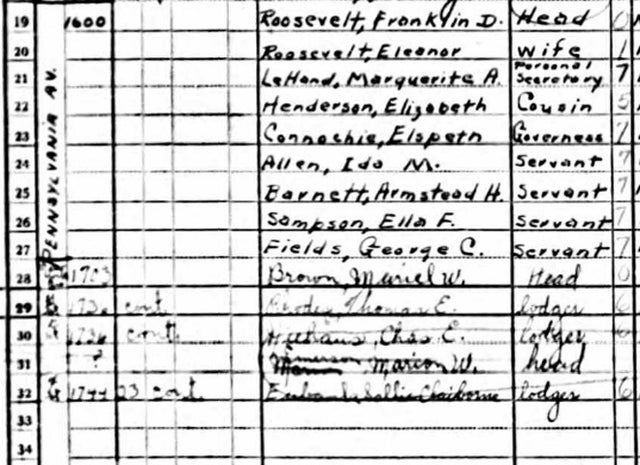 19 1600 Roosevelt, Franklin D. Head 0
20 Roosevelt, Eleanor Wife 1
21 LeHand, Marguerite A. Personal Secretary 7
22 Henderson, Elizabeth Cousin 5
23 Connochie, Elspeth Governess 7
24 Allen, Ida M. Servant 7
25 Barnett, Armstead H. Servant 7
26 Sampson, Ella F. Servant 7
27 Fields, George C. Servant 7
PENNSYLVANIA AV.
28 1703 Brown, Muriel W. Head 0
29 1736 cont. Thomas E. lodger 6
30 1736 cont. Chas. E. lodger 6
31 ? Marion W. head
32 1744 23 cont. Sallie Claiborne lodger 6
33
34